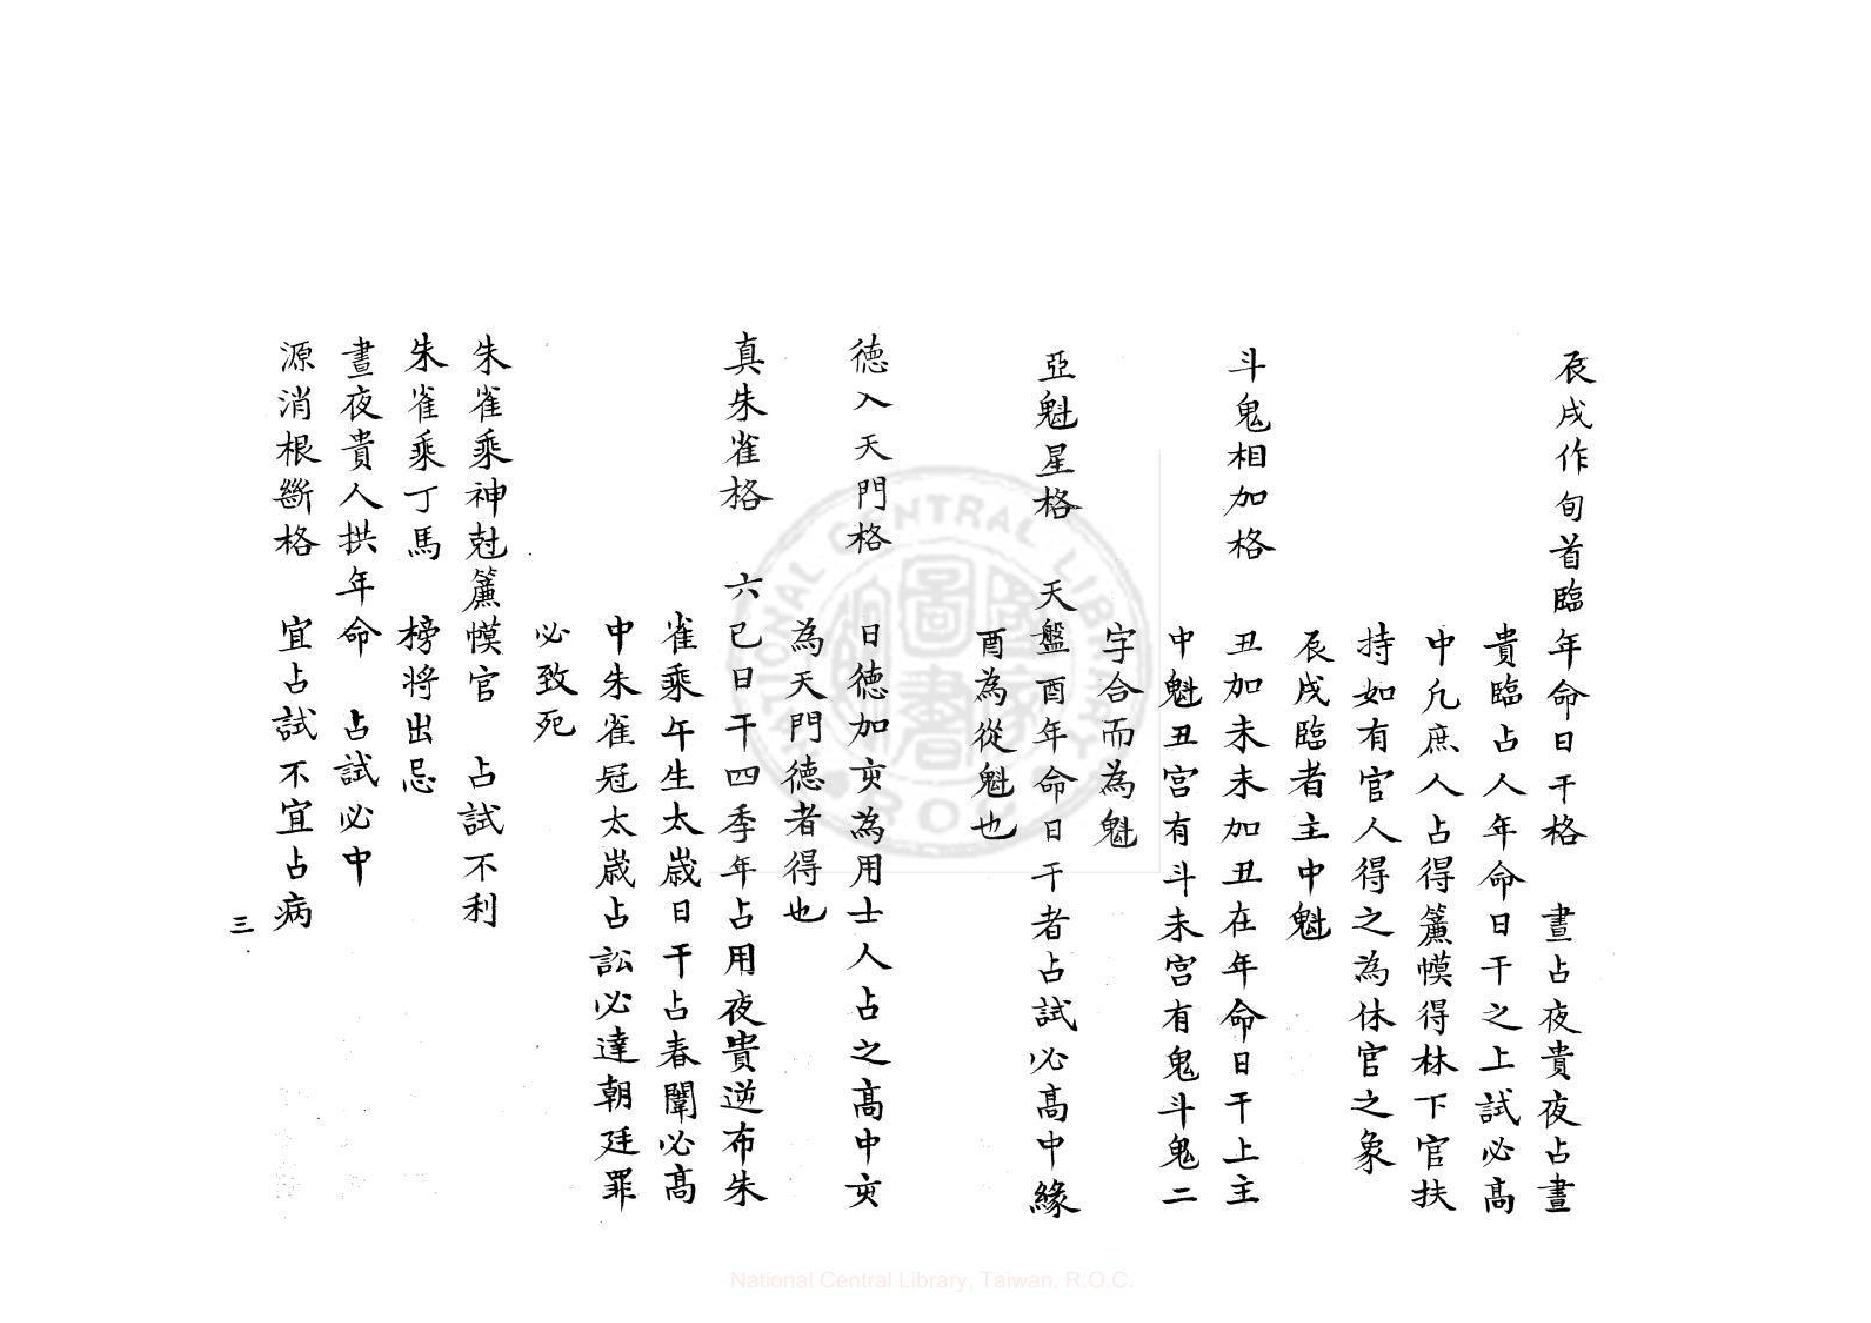 辰戌作旬首臨年命日干格　晝占夜貴夜占晝
貴臨占人年命日干之上試必高
中凡庶人占得簾幙得林下官扶
持如有官人得之為休官之象
辰戌臨者主中魁
斗鬼相加格　丑加未未加丑在年命日干上主
中魁丑宮有斗未宮有鬼斗鬼二
字合而為魁
亞魁星格　天盤酉年命日干者占試必高中緣
酉為從魁也
德入天門格　日德加亥為用士人占之高中亥
為天門德者得也
真朱雀格　六己日干四季年占用夜貴逆布朱
雀乘午生太歲日干占春闈必高
中朱雀冠太歲占訟必達朝廷罪
必致死
朱雀乘神尅簾幙官　占試不利
朱雀乘丁馬　榜將出忌
晝夜貴人拱年命　占試必中
源消根斷格　宜占試不宜占病
三
National Central Library, Taiwan, R.O.C.